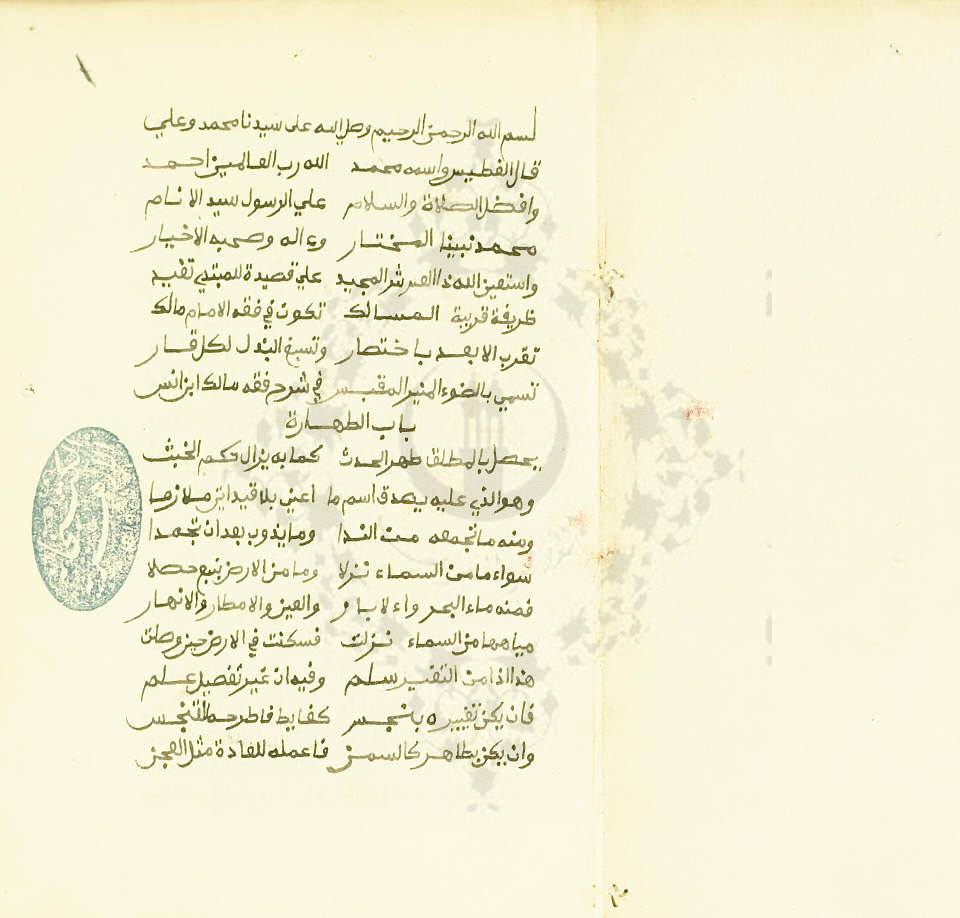 بسم الله الرحمن الرحيم وصلى الله على سيدنا محمد وعلي
قال الفطيس واسمه محمد الله رب العالمين احمد
وافضل الصلاة والسلام علي الرسول سيد الانام
محمد نبينا المختار وءاله وصحبه الاخيار
واستعين الله ذا العرش المجيد علي قصيدة للمبتدي تفيد
ظريفة قريبة المسالك تكون في فقه الامام مالك
تقرب الابعد باختصار وتسبغ البذل لكل قار
تسمي بالضوء المنير المقتبس في شرح فقه مالك ابن انس
باب الطهارة
يحصل بالمطلق طهر الحدث كما به يزال حكم الخبث
وهو الذي عليه يصدق اسم ما اعني بلا قيد اتى ملازما
ومنه ما تجمعه من الندا وما يذوب بعد ان تجمدا
سواء ما من السماء نزلا وما من الارض بنبع حصلا
فمنه ماء البحر وا ءلابار والعين والامطار والانهار
مياهها من السماء نزلت فسكنت في الارض حين وصلت
هذا اذا من التغير سلم وفيه ان غير تفصيل علم
فان يكن تغييره بانجس كغايط فاطرحه للتنجس
وان يكن بطاهر كالسمن فاعمله للعادة مثل العجن